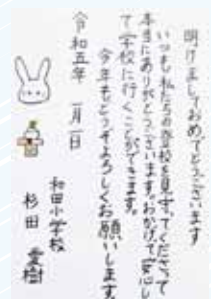 明けましておめでとうございます
いつも私たちの登校を見守ってくださって
本当にありがとうございます。おかげで、安心し
て学校に行くことができます。
今年もどうぞよろしくお願いします。
令和五年 一月一日
和田小学校
杉田 愛樹